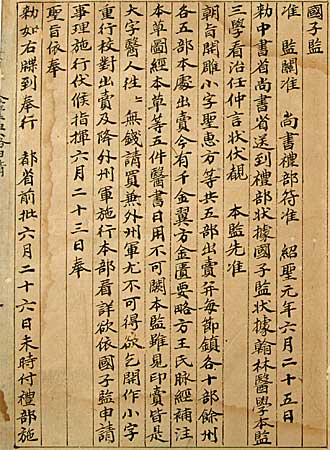 國子監
准 監關准 尚書禮部符准 紹聖元年六月二十五日
勑中書省尚書省送到禮部狀據國子監狀據翰林醫學本監
三學看治任仲言狀伏覩 本監先准
朝旨開雕小字聖惠方等共五部出賣并每節鎮各十部餘州
各五部本處出賣今有千金翼方金匱要略方王氏脉經補注
本草圖經本草等五件醫書日用不可闕本監雖見印賣皆是
大字醫人往往無錢請買兼外州軍尤不可得欲乞開作小字
重行校對出賣及降外州軍施行本部看詳欲依國子監申請
事理施行伏候指揮六月二十三日奉
聖旨依奉
勑如右牒到奉行 都省前批六月二十六日未時付禮部施